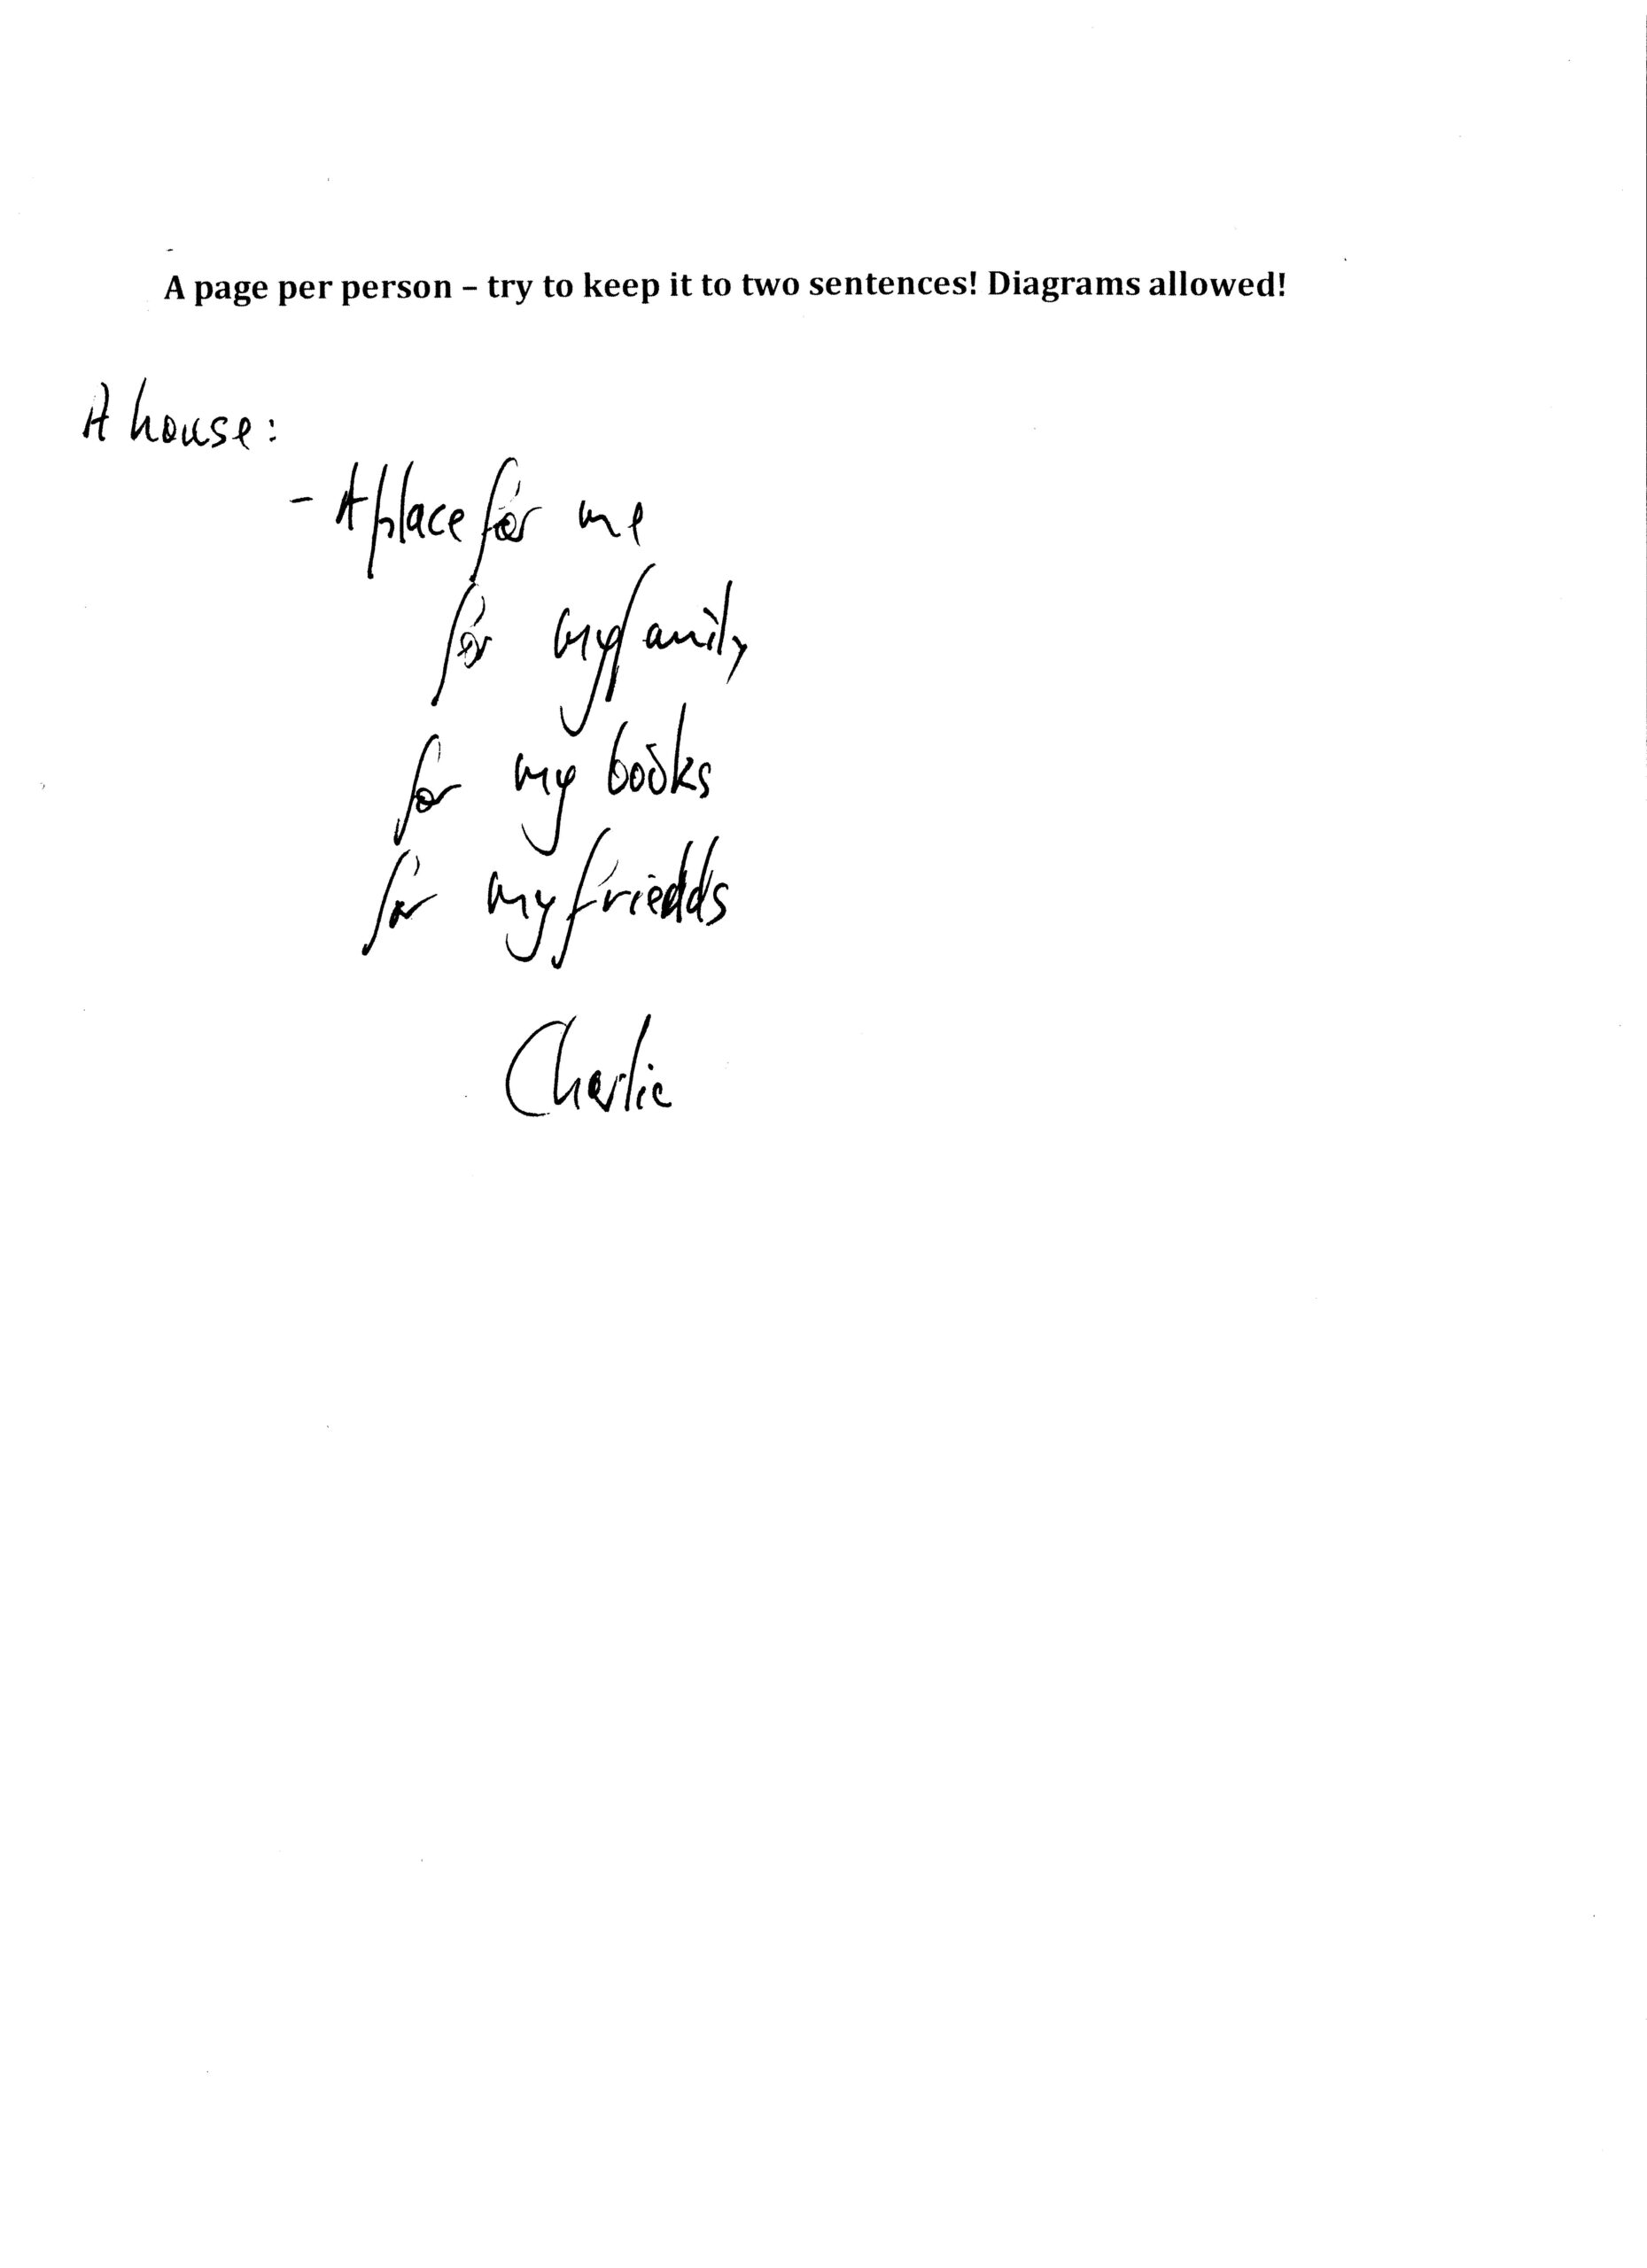 A page per person – try to keep it to two sentences! Diagrams allowed!
A house:
- A place for me
for my family
for my books
for my friedds
Charlie